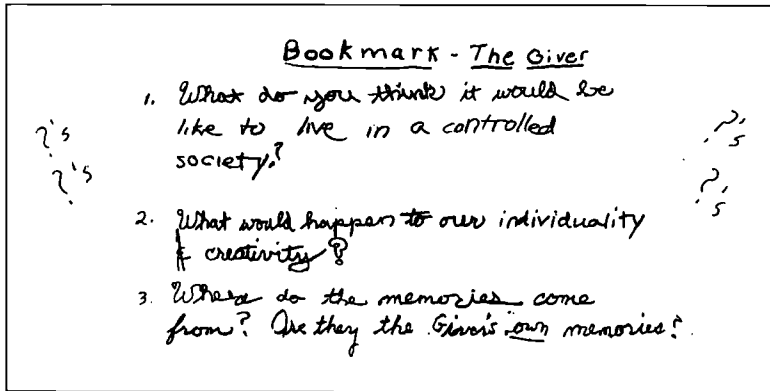 Bookmark - The Giver
1. What do you think it would be
like to live in a controlled
society?
?'s
?'s
?'s
?'s
2. What would happen to our individuality
& creativity?
3. Where do the memories come
from? Are they the Giver's own memories?